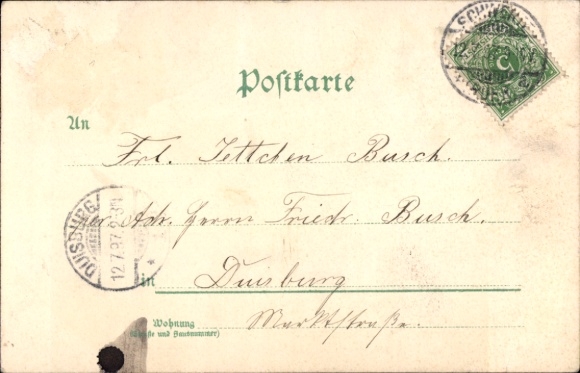 Postkarte
An
Frl. Jettchen Busch.
per Adr. Herrn Friedr. Busch.
DUISBURG
12.7.97.
in Duisburg
Wohnung
Marktstraße.
(Straße und Hausnummer)